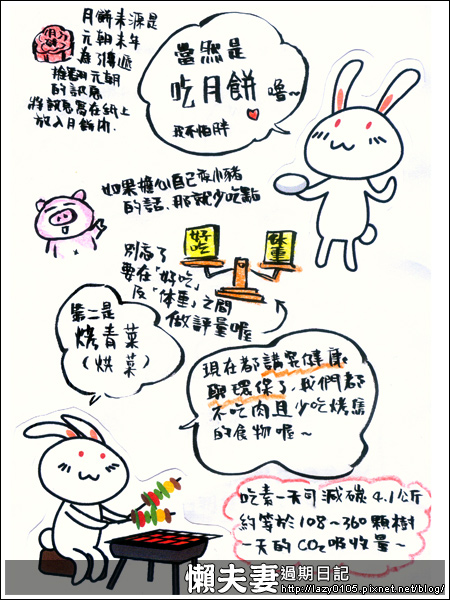 月餅
月餅來源是
元朝末年
為了傳遞
推翻元朝
的訊息
將訊息寫在紙上
放入月餅內.
當然是
吃月餅嚕~
我不怕胖
如果擔心自己變小豬
的話、那就少吃點
好吃
体重
別忘了
要在「好吃」
及「体重」之間
做評量喔
第二是
烤青菜
(烘菜)
現在都講究健康
跟環保了,我們都
不吃肉且少吃燒焦
的食物喔~
吃素一天可減碳4.1公斤
約等於108~360顆樹
一天的CO₂吸收量~
懶夫妻過期日記
http://lazy0105.pixnet.net/blog/